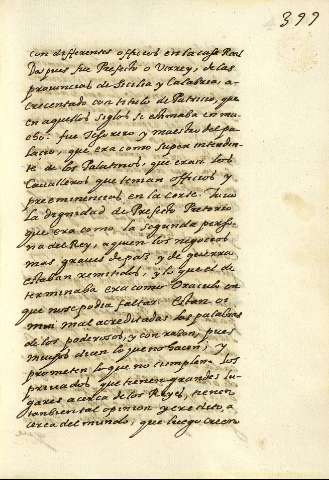 399
con differentes officios en la casa Real
Despues fue Prefecto o Virrey, de las
provincias de Sicilia y Calabria, a-
crecentado con titulo de Patricio, que
en aquellos siglos se estimaba en mu
cho: fue Tesorero y maestro del pa
lacio, que era como superintendin
te de los Palatinos, que eran los
Cavalleros que tenian officios y
preeminencias en la corte. tuvo
la dignidad de Prefecto Pretorio
que era como la segunda perso
na del Rey, a quien los negocios
mas graves de paz y de guerra
estaban remitidos, y lo que el de
terminaba era como Oraculo en
que no se podia faltar. Estan oi
mui mal acreditadas las palabras
de los poderosos, y con razon, pues
muchos dicen lo que no hacen, y
prometen lo que no cumplen. Los
privados que tienen grandes lu-
gares acerca de los Reyes, tienen
tambien tal opinion y credito, a
cerca del mundo, que luego creen